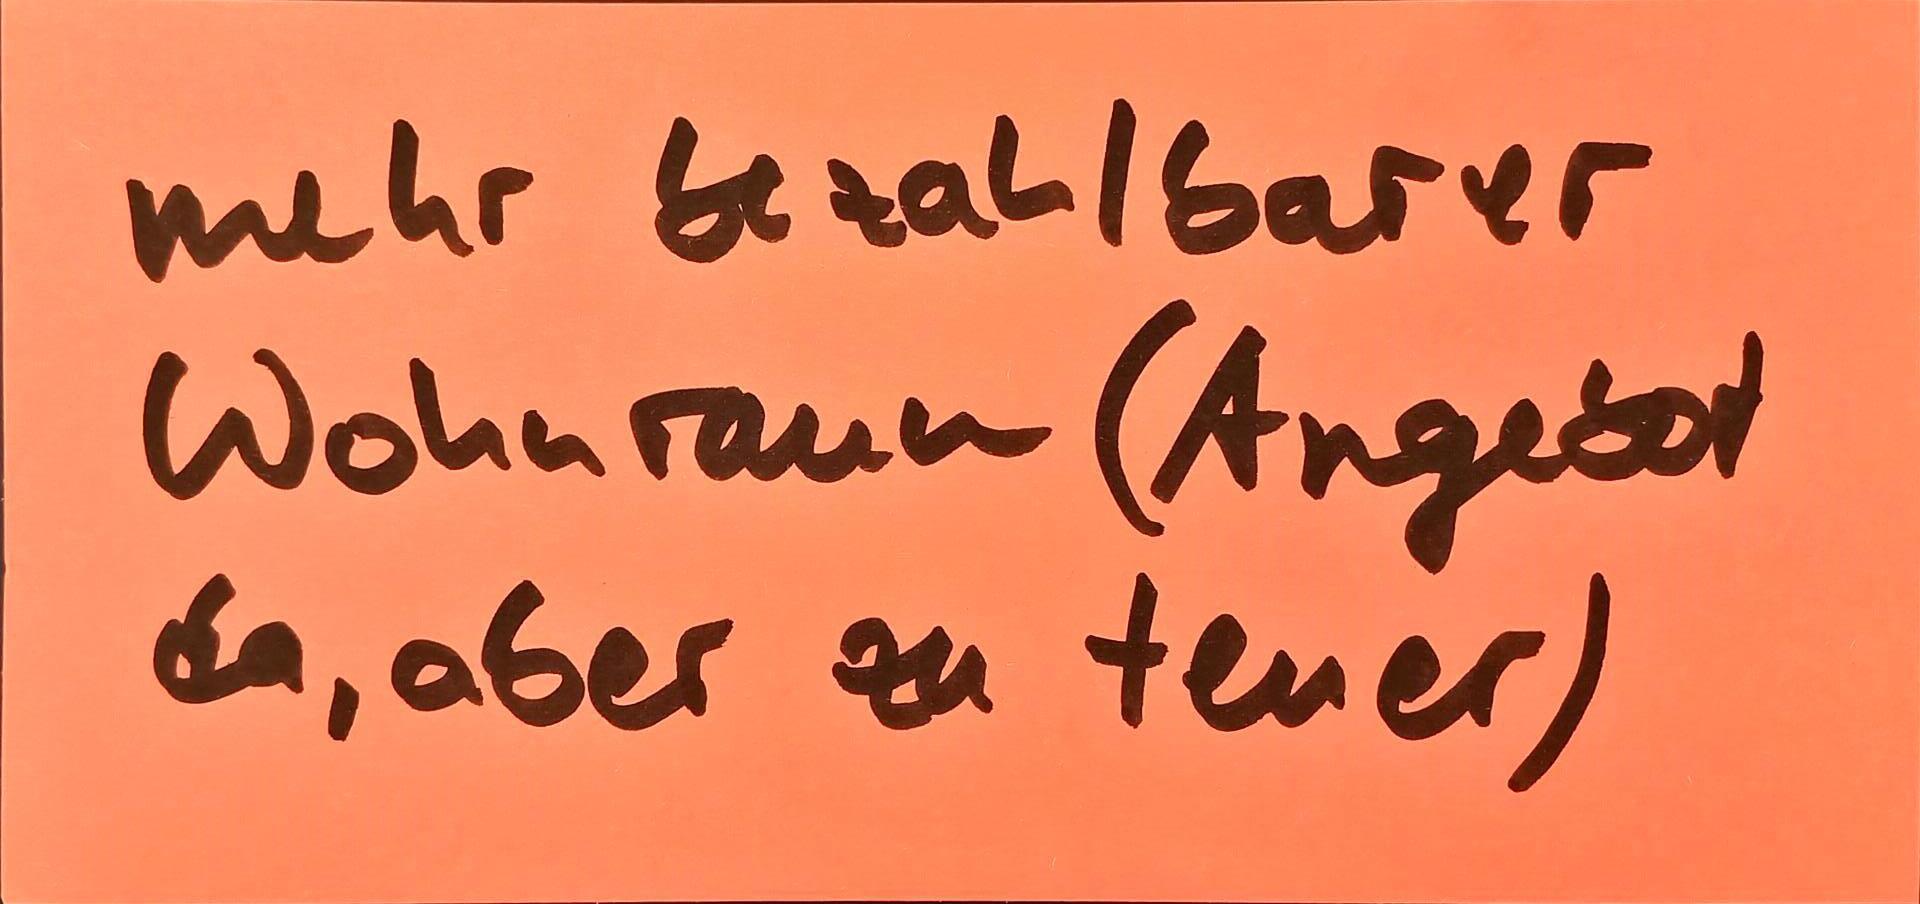 mehr bezahlbarer
Wohnraum (Angebot
da, aber zu teuer)